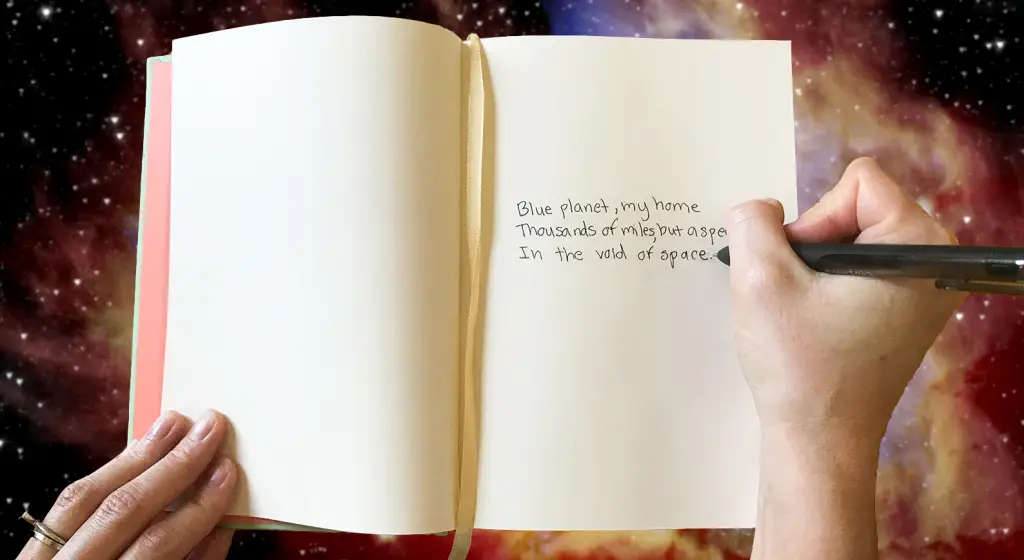 Blue planet, my home
Thousands of miles, but a
In the void of space.